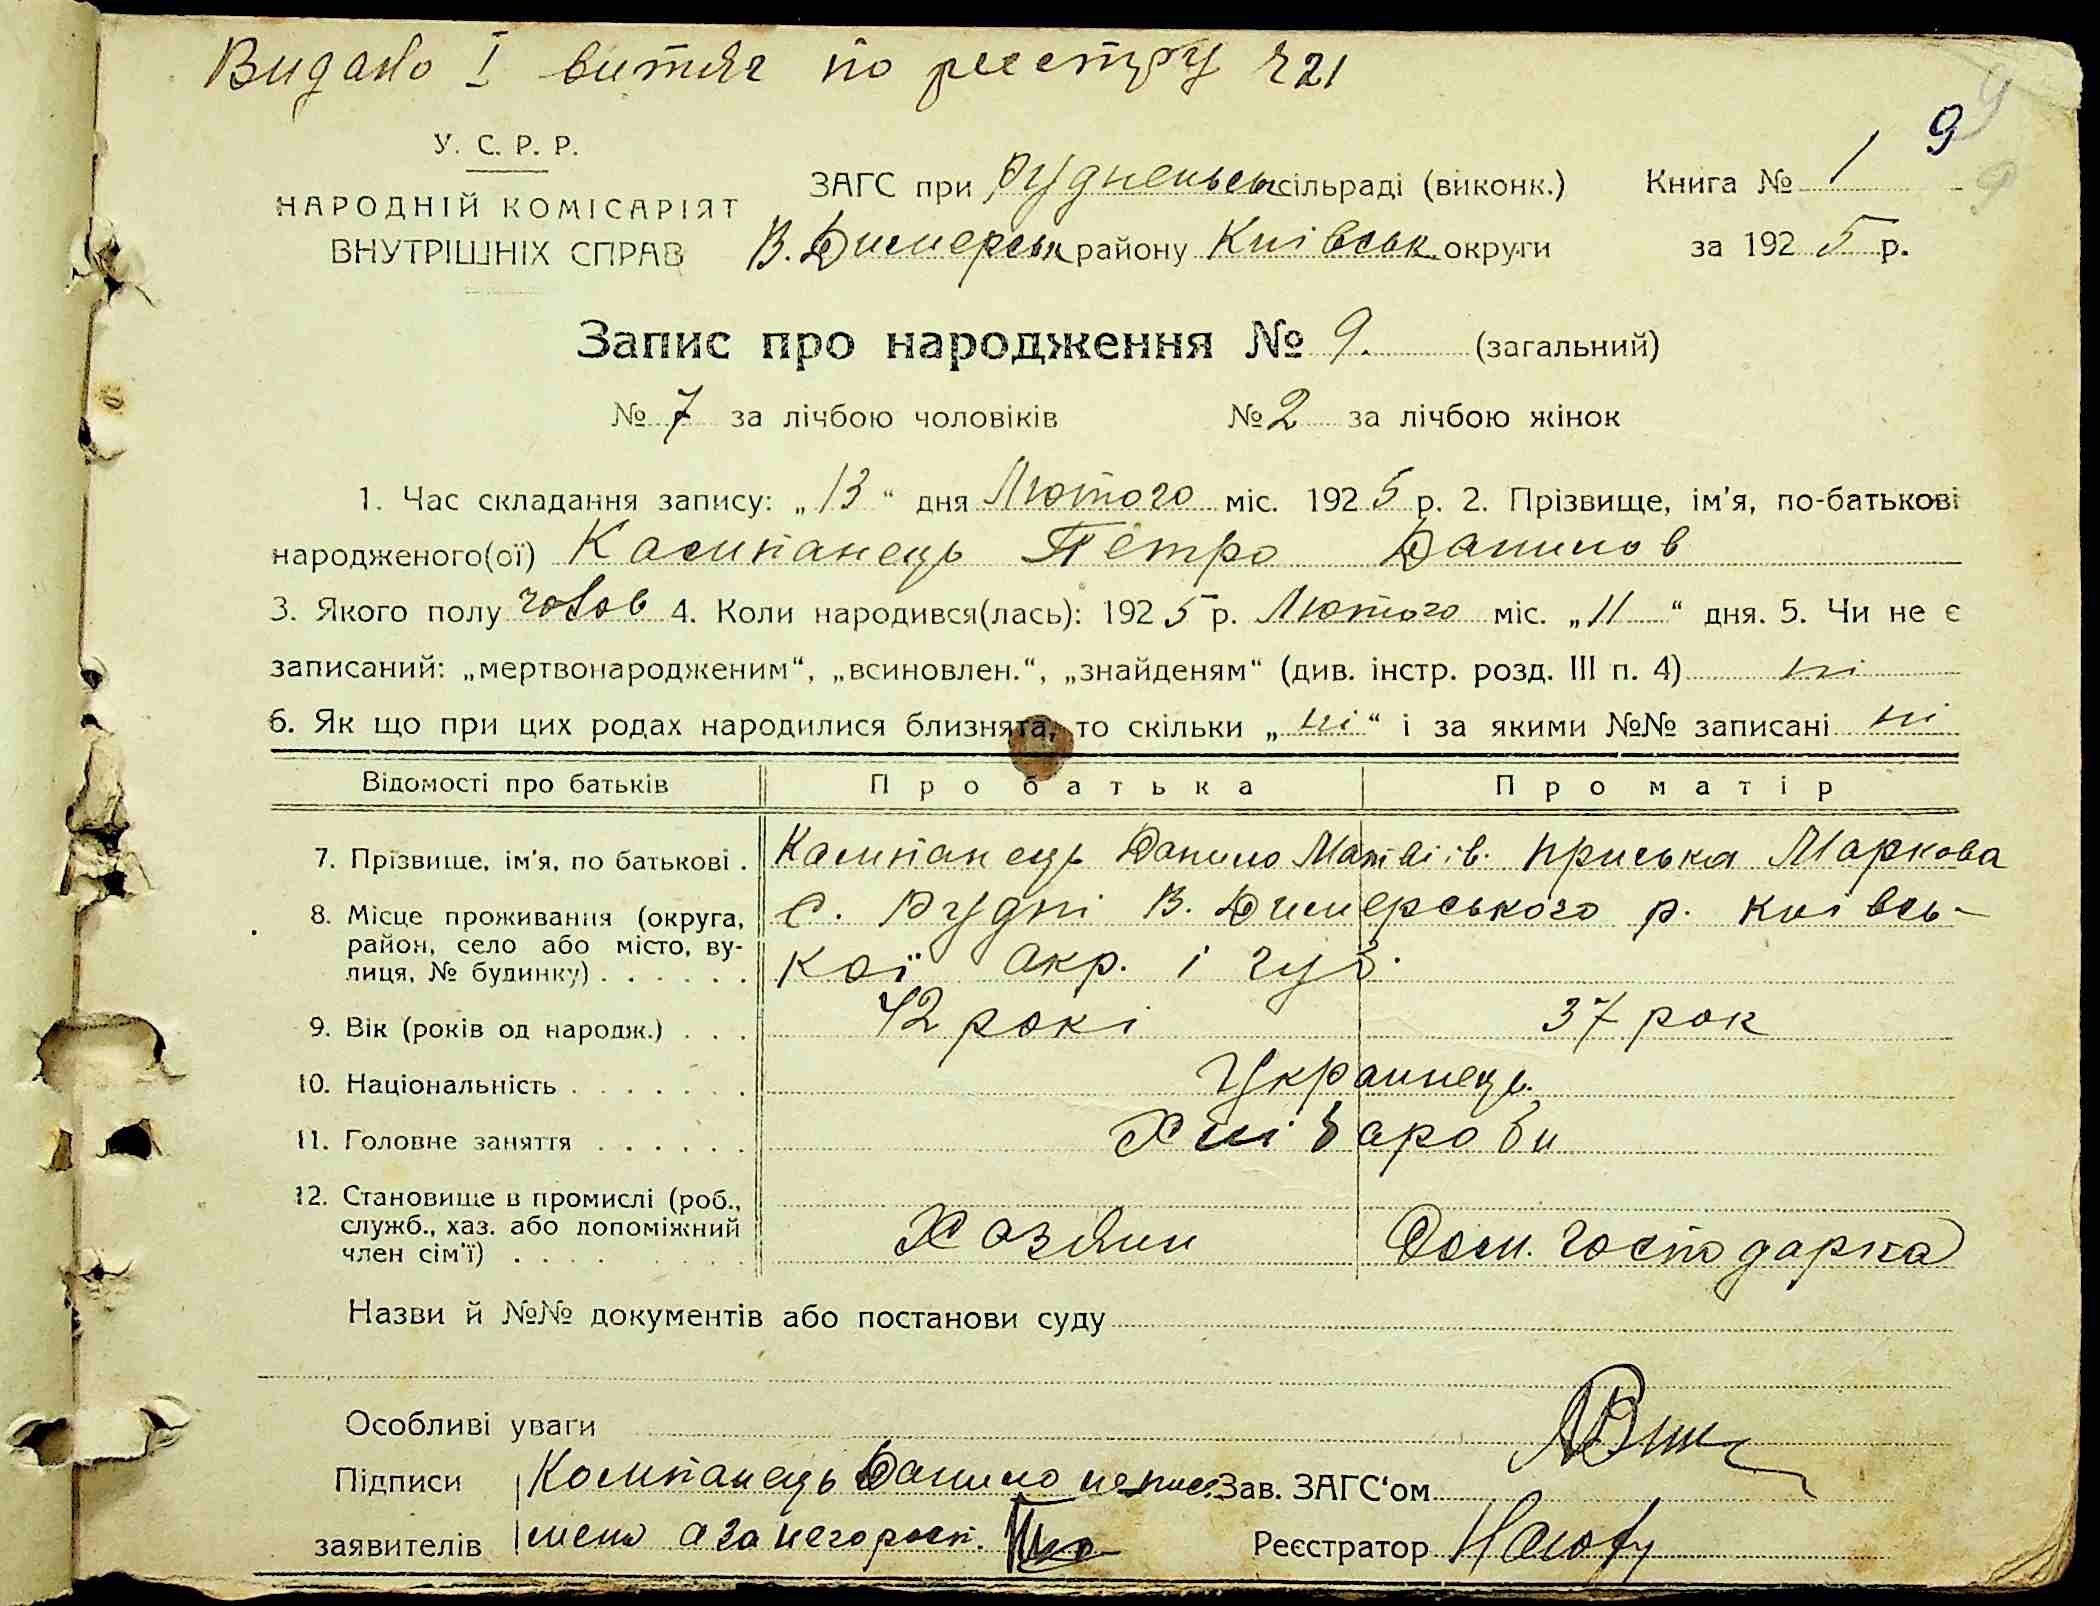 Видано I витяг по реєстру ч 21
9
У. С. Р. Р.
НАРОДНІЙ КОМІСАРІЯТ
ВНУТРІШНІХ СПРАВ
ЗАГС при Рудненськ сільраді (виконк.) Книга № 1
В. Димерськ району Київськ. округи за 1925 р.
Запис про народження № 9. (загальний)
№ 7 за лічбою чоловіків № 2 за лічбою жінок
1. Час складання запису: „13“ дня Лютого міс. 1925 р. 2. Прізвище, ім'я, по-батькові
народженого(ої) Компанець Петро Данилов
3. Якого полу чолов 4. Коли народився(лась): 1925 р. Лютого міс. „11“ дня. 5. Чи не є
записаний: „мертвонародженим“, „всиновлен.“, „знайденям“ (див. інстр. розд. III п. 4) ні
6. Як що при цих родах народилися близнята, то скільки „ні“ і за якими №№ записані ні
Відомості про батьків Про батька Про матір
7. Прізвище, ім'я, по батькові . Компанець Данило Матвіїв. Приська Маркова
8. Місце проживання (округа, район, село або місто, вулиця, № будинку) . . . . . . с. Рудні В. Димерського р. Київсь-
кої окр. і губ.
9. Вік (років од народж.) . . . 42 рокі 37 рок
10. Національність . . . . . . . Украинець
11. Головне заняття . . . . . . Хліборобы
12. Становище в промислі (роб., служб., хаз. або допоміжний член сім'ї) . . . . Хозяин Дом. господарка
Назви й №№ документів або постанови суду
Особливі уваги
Підписи Компанець Данило непис. Зав. ЗАГС'ом
заявителів мено а за него росп. Реєстратор